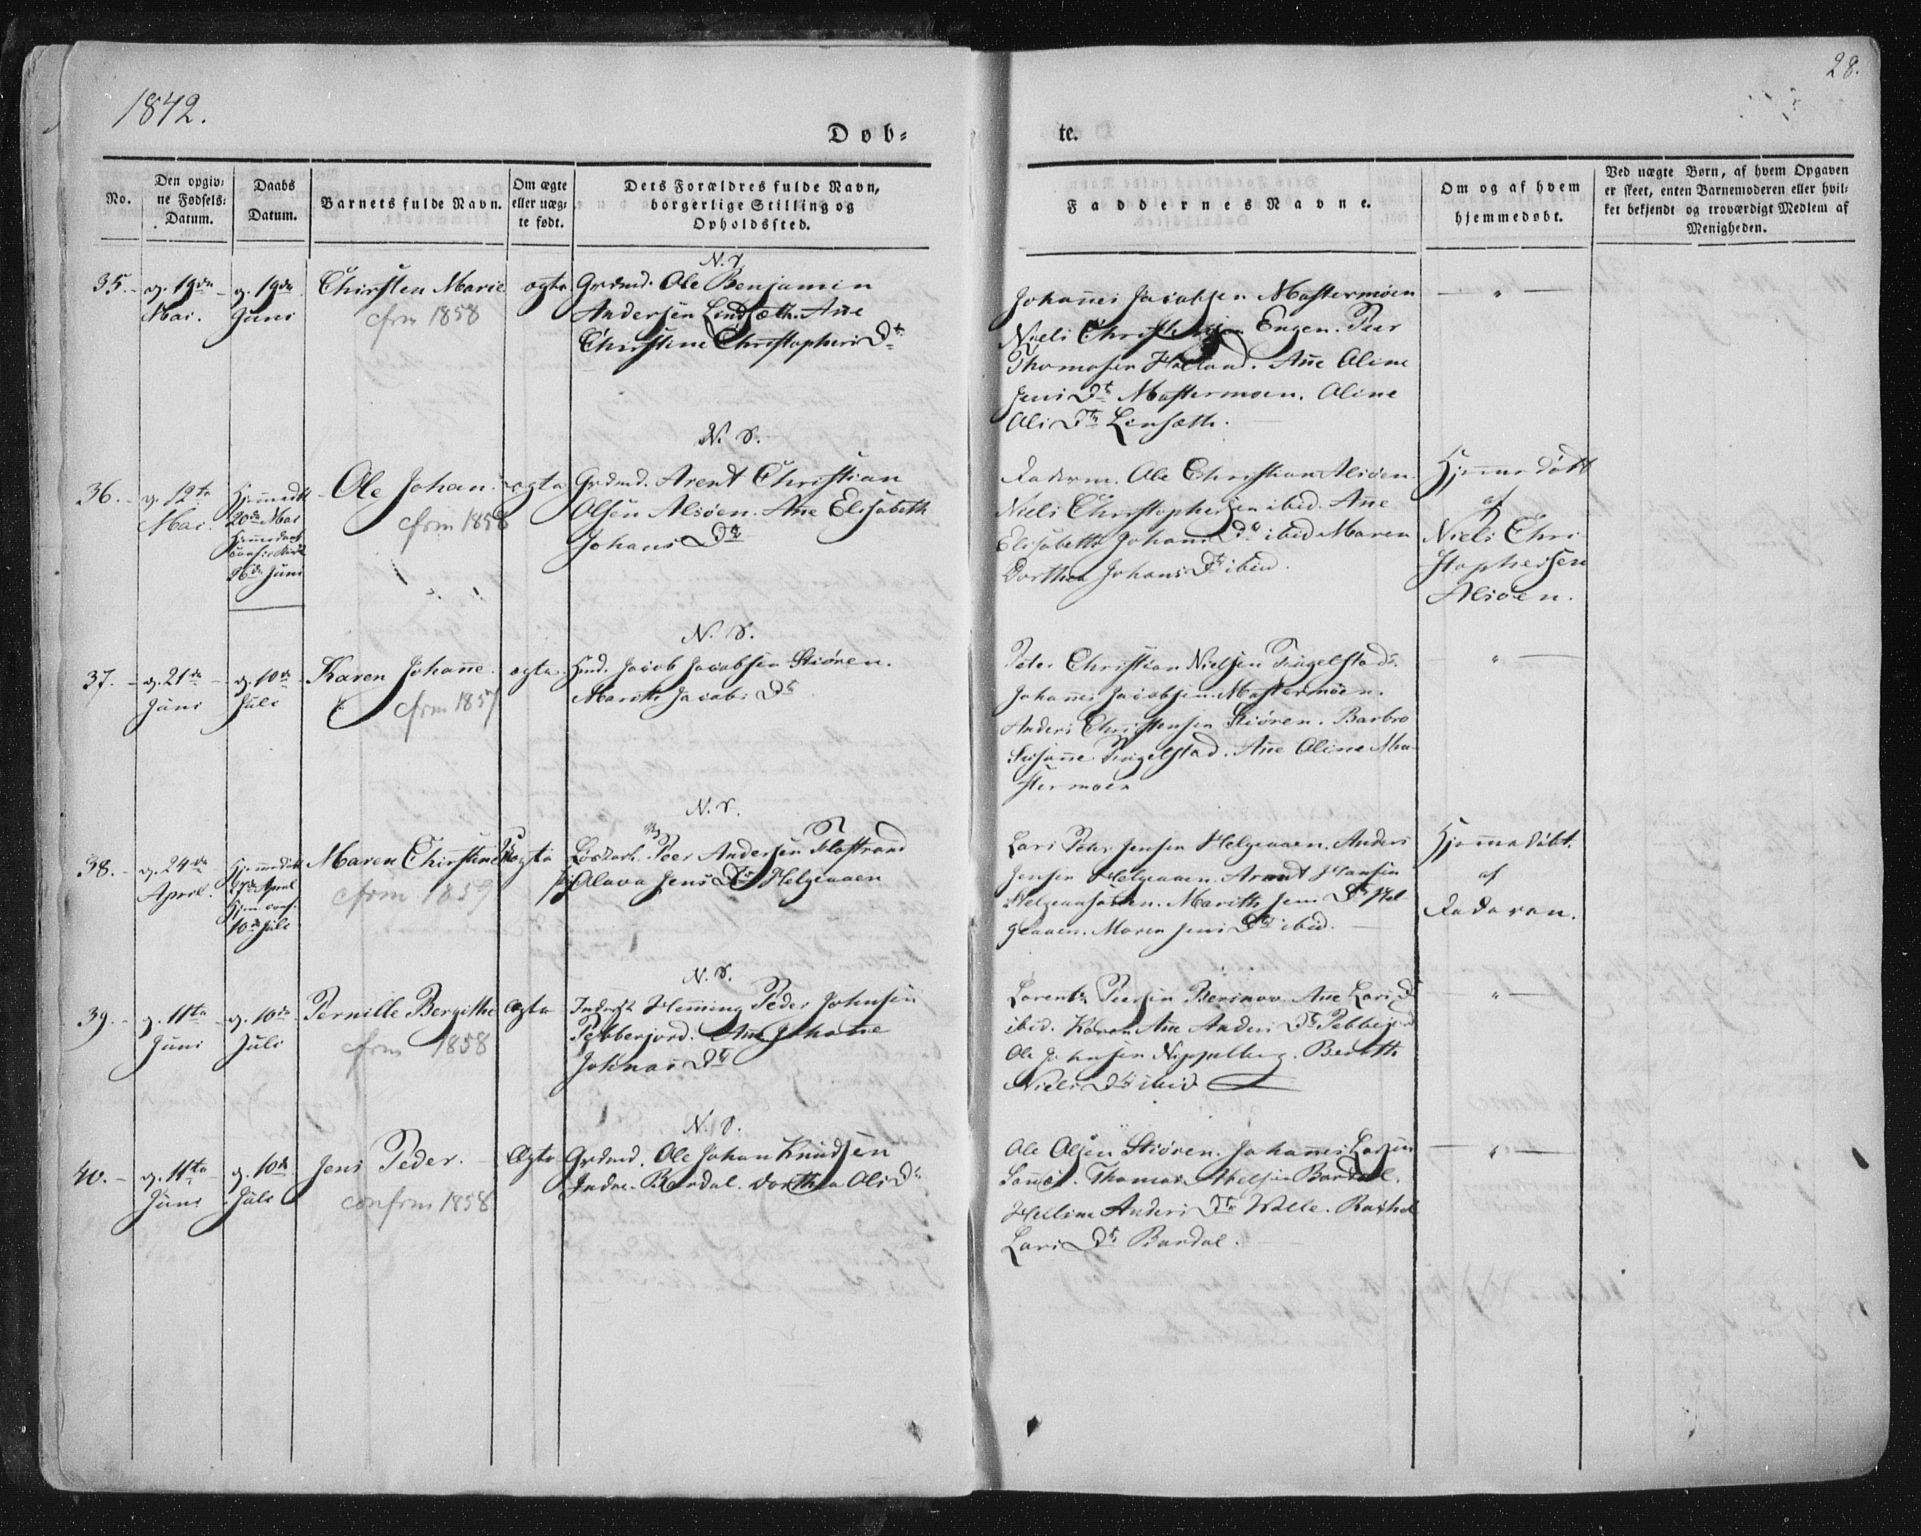 1842.
28.
Døb-
te.
No.
Den opgiv-
ne Fødsels-
Datum.
Daabs
Datum.
Barnets fulde Navn.
Om ægte
eller uæg-
te født.
Dets Forældres fulde Navn,
borgerlige Stilling og
Opholdssted.
Faddernes Navne.
Om og af hvem
hjemmedøbt.
Ved uægte Børn, af hvem Opgaven
er skeet, enten Barnemoderen eller hvil-
ket bekjendt og troværdigt Medlem af
Menigheden.
35.
19de
Mai.
19de
Juni
Chirsten Marie
cfrm 1858
ægte
Grdmd. Ole Benjamin
Andersen Lindsæth. Ane
Chirstine Christophers Dt
Johannes Jacobsen Mastermoen
Niels Christensen Engen. Peer
Thomasen Haaland. Ane Oline
Jens Dt Mastermoen. Oline
Ols Dt Lensæth.
36.
12te
Mai.
Hjemmedøbt
20de Mai
26de Juni
Ole Johan
cfrm 1858
ægte
N. S.
Grdmd. Arent Christian
Olsen Alsøen. Ane Elisabeth
Johans Dt
Faderen. Ole Christian Alsøen
Niels Christophersen ibid. Ane
Elisabeth Johans Dt ibid Maren
Dorthea Johans Dt ibid.
Hjemmedøbt
af
Niels Chri
stophersen
Alsøen.
37.
21de
Juni
10de
Juli
Karen Johanne.
cfrm 1857
ægte
N. S.
Hmd. Jacob Jacobsen Stiøren.
Marith Jacobs Dt
Peter Christian Nielsen Tingelstad.
Johannes Jacobsen Mastermoen.
Anders Christensen Stiøren. Barbro
Susanne Tingelstad. Ane Oline Ma-
stermoen
38.
24de
April.
Hjemmedøbt
27de April
10de Juli
Maren Chirstine
cfrm 1859
uægte
N. S.
Peer Andersen Flostrand
Olava Jens Dt Helgeaaen
Lars Peter Jensen Helgeaaen. Anders
Jensen Helgeaaen. Arent Hansen
Marith Jens Dt Hel
geaaen. Maren Jens Dt ibid.
Hjemmedøbt.
af
Faderen.
39.
11te
Juni
10de
Juli
Pernille Bergithe
cfrm 1858
ægte
N. S.
Inderst Hemming Peder Johnsen
Tybberjord. Ane Johanne
Johnas Dt
Lorents Peersen Ane Lars D
ibid. Karen Ane Anders Dt
Ole Johnsen Nippelberg. Berith
Niels Dt ibid
40.
11te
Juni
10de
Juli
Jens Peder.
confrm 1858
Ægte
N. S.
Grdmd. Ole Johan Knudsen
Indre Bardal. Dorthea Ols Dt
Ole Olsen Stiøren. Johannes Larsen
Thomas Abelsen Bardal.
Helline Anders Dt Walle. Rachel
Lars Dt Bardal.